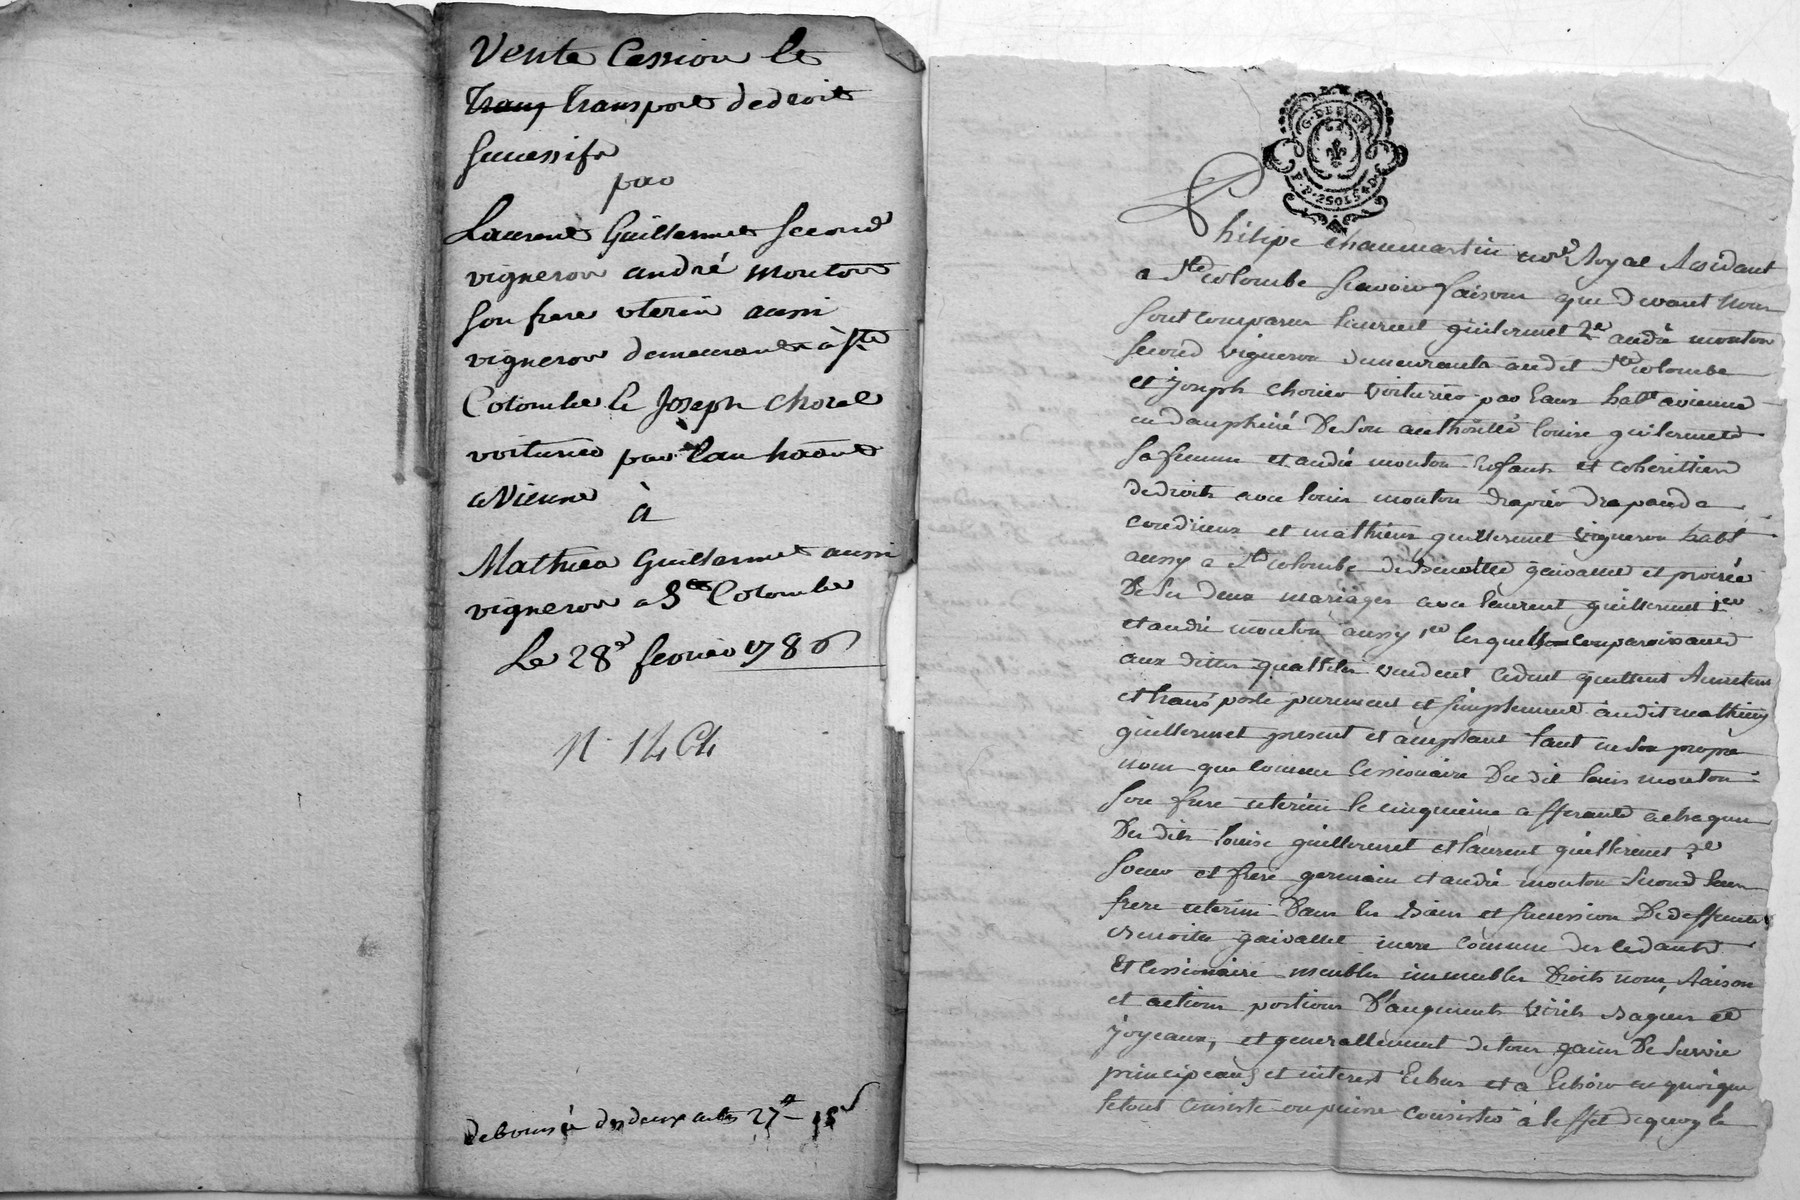 Vente Cession Et
Trans Transport de droit
Sucessifs
par
Laurent Guillermet second
vigneron andré mouton
son frere uterin aussi
vigneron demeurants à Ste
Colombe & Joseph Chorel
voiturier par Eau
a Vienne
à
Mathieu Guillermet aussi
vigneron a Ste Colombe
Le 28e fevrier 1786
N. 14
debourse des deux actes 27
G. DE LYON
Philipe Chaumartin Royal Residant
a Ste Colombe Scavoir faisons que devant nous
sont comparus Laurent guillermet 2e andré mouton
second vigneron demeurants audit Ste Colombe
et joseph voiturier par Eaux habt a vienne
en dauphiné De Son authorité Louise guillermet
Sa femme et andré mouton Enfants et coheritiers
de droits avec Louis mouton drapier drapand a
condrieux et mathieu guillermet vigneron habt
aussy a Ste Colombe de Benoitte et
De Ses deux mariages avec Laurent guillermet 1er
et andré mouton aussy 1er lesquels comparoissants
aux dittes qualités vendent cedent quittent Remettent
et transporte purement et simplement audit mathieu
guillermet present et acceptant tant en Son propre
nom que comme Cessionaire Du dit Louis mouton
Son frere uterin le cinquieme afferant a chaqun
Des dits Louise guillermet et Laurent guillermet 2e
Soeur et frere germain et andré mouton Second leur
frere uterin Dans les Biens et succession De deffunte
Benoitte mere comune des cedants
Et Cessionaire meubles immeubles Droits noms Raisons
et actions portions D'augments Bagues et
joyeaux, et generallement de tous gains De Survie
principeaux et interest Echus et a Echoir en quoique
le tout Consiste ou puisse Consister à l'effet de quoy le